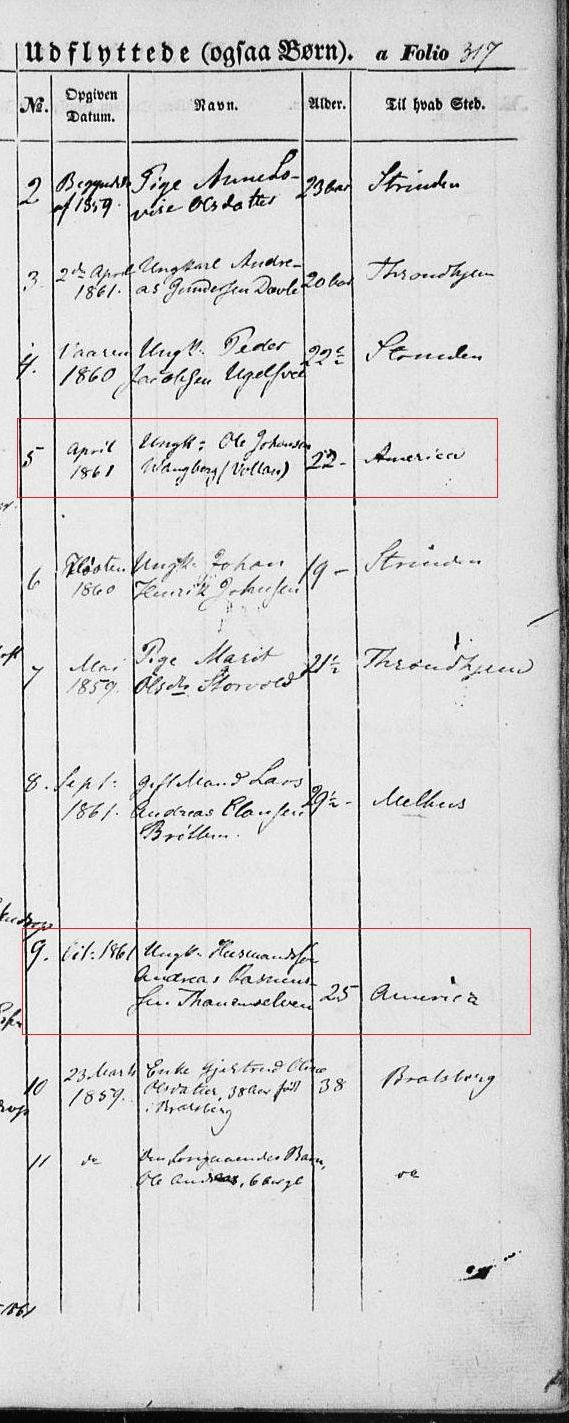 Udflyttede (ogsaa Børn). a Folio 317
№. Opgiven Datum. Navn. Alder. Til hvad Sted.
2 af 1859. Pige Anne Lo-
vise Olsdatter 23 Strinden
3. 2den April 1861. Ungkarl Andre-
as Gundersen 20 Throndhjem
4. Vaaren 1860 Ungk. Peder
Jacobsen 22 Strinden
5 April 1861 Ungk: Ole Johansen
Wangberg (Vollan) 22 - America
6 1860 Ungk. Johan
Henrik Johnsen 19 - Strinden
7 Mai 1859. Pige Marit
Olsdtr Storvold 21½ Throndhjem
8. Sept: 1861. gift Mand Lars
Andreas Clausen
Bröttem. 29½ - Melhus
9. 1861 Ungk.
Andreas Rasmus-
sen 25 America
10 23 Marts 1859. Enke Gjertrud Oline
Olsdatter, 38 Aar født
i Bratsberg 38 Bratsberg
11 do Barn,
Ole Andreas, 6 do
1861